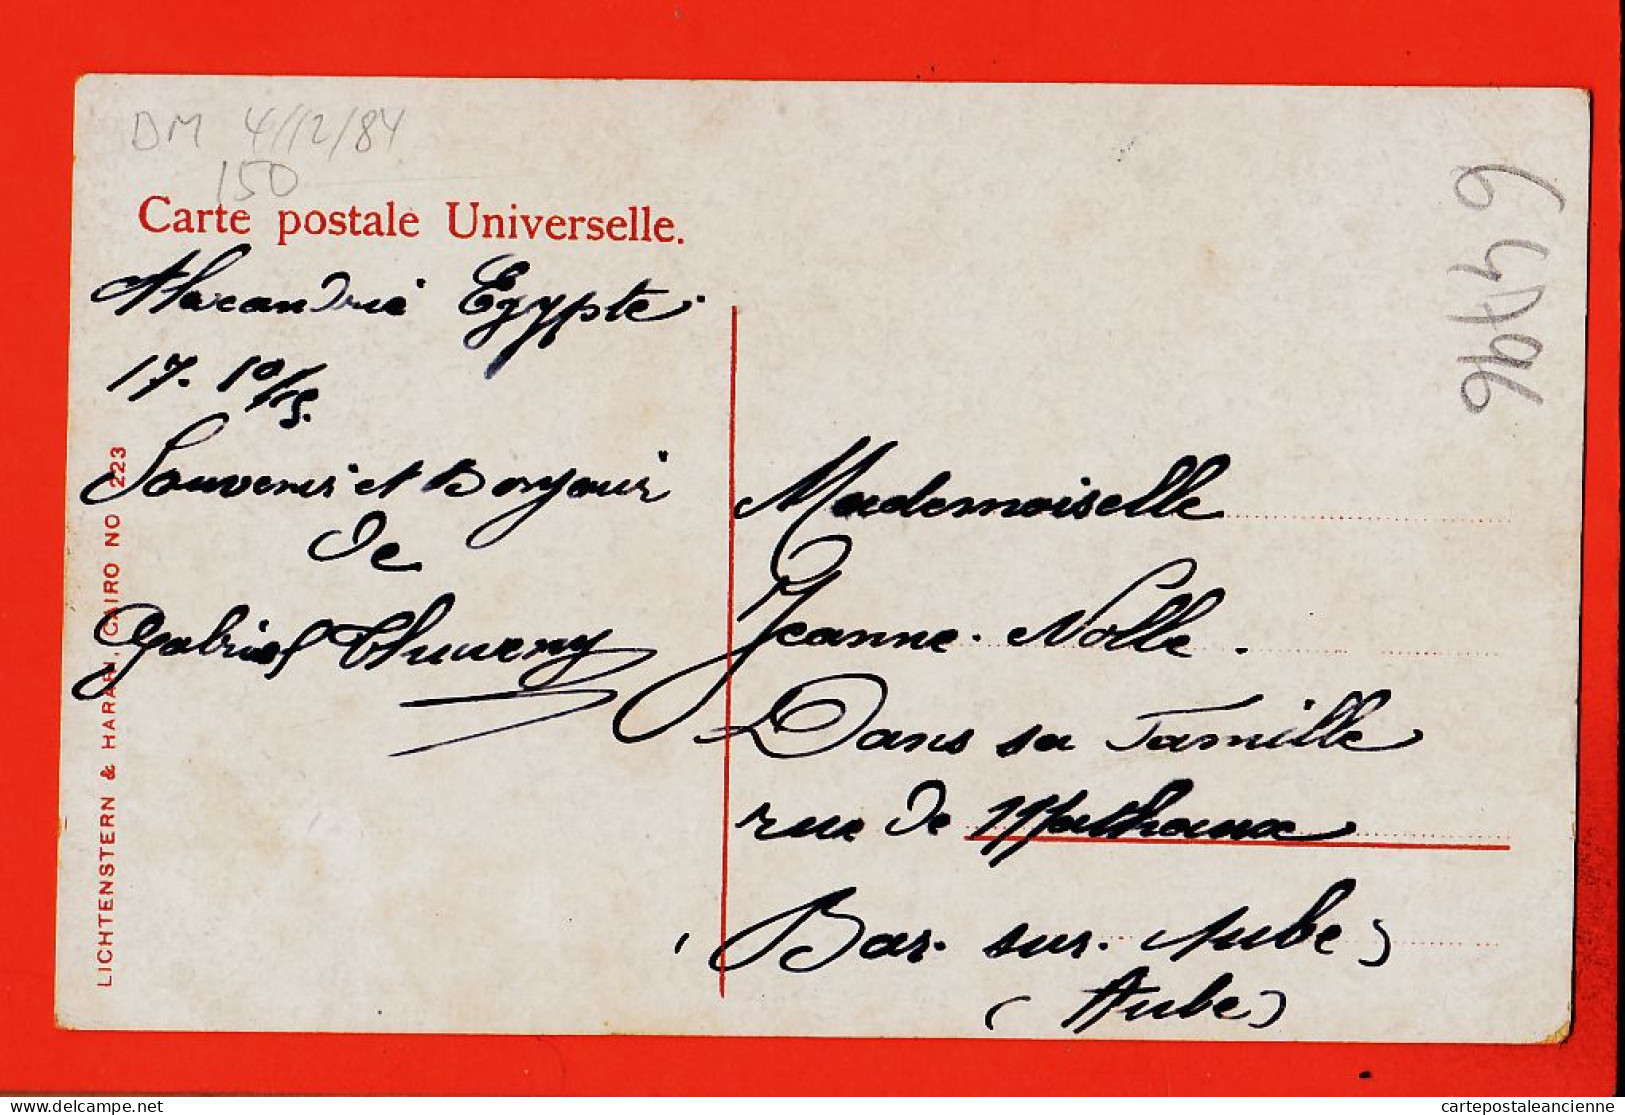 DM 4/12/84
150
Carte postale Universelle.
Alexandrie Egypte.
17. 10/5.
Souvenir et Bonjour
de
Gabriel Thuveny
LICHTENSTERN & HARARI, CAIRO NO 223
Mademoiselle
Jeanne. Nolle.
Dans sa Famille
rue de Mathaux
Bar. sur. Aube
(Aube)
cartepostale.net
delcampe.net